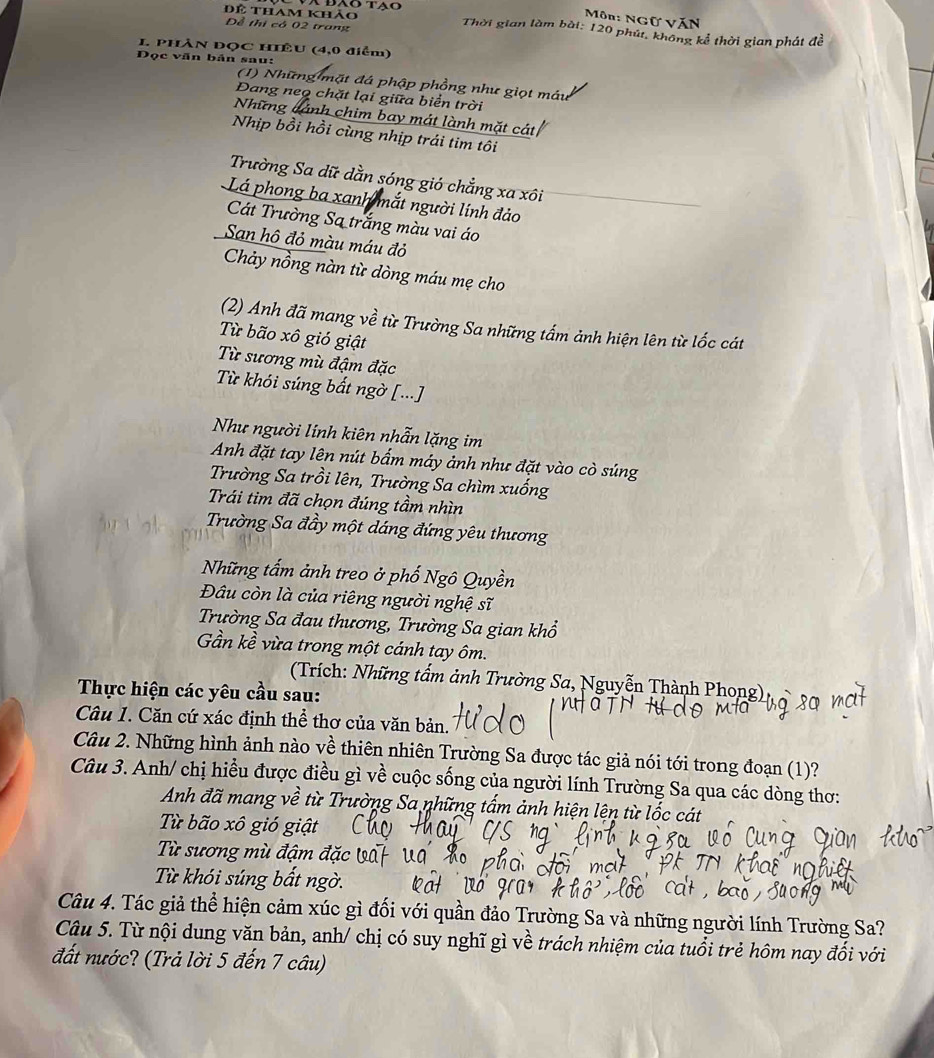 VÀ ĐÀO TẠO
ĐỀ THAM KHẢO
Đề thi có 02 trang
Môn: NGỮ VĂN
Thời gian làm bài: 120 phút, không kể thời gian phát đề
I. PHẦN ĐỌC HIỂU (4,0 điểm)
Đọc văn bản sau:
(1) Những mặt đá phập phồng như giọt máu
Đang neo chặt lại giữa biển trời
Những cánh chim bay mát lành mặt cát
Nhịp bồi hồi cùng nhịp trái tim tôi
Trường Sa dữ dằn sóng gió chẳng xa xôi
Lá phong ba xanh mắt người lính đảo
Cát Trường Sa trắng màu vai áo
San hô đỏ màu máu đỏ
Chảy nồng nàn từ dòng máu mẹ cho
(2) Anh đã mang về từ Trường Sa những tấm ảnh hiện lên từ lốc cát
Từ bão xô gió giật
Từ sương mù đậm đặc
Từ khói súng bất ngờ [...]
Như người lính kiên nhẫn lặng im
Anh đặt tay lên nút bấm máy ảnh như đặt vào cò súng
Trường Sa trồi lên, Trường Sa chìm xuống
Trái tim đã chọn đúng tầm nhìn
Trường Sa đầy một dáng đứng yêu thương
Những tấm ảnh treo ở phố Ngô Quyền
Đâu còn là của riêng người nghệ sĩ
Trường Sa đau thương, Trường Sa gian khổ
Gần kề vừa trong một cánh tay ôm.
(Trích: Những tấm ảnh Trường Sa, Nguyễn Thành Phong)
Thực hiện các yêu cầu sau:
Câu 1. Căn cứ xác định thể thơ của văn bản. tự do
Câu 2. Những hình ảnh nào về thiên nhiên Trường Sa được tác giả nói tới trong đoạn (1)?
Câu 3. Anh/ chị hiểu được điều gì về cuộc sống của người lính Trường Sa qua các dòng thơ:
Anh đã mang về từ Trường Sa những tấm ảnh hiện lên từ lốc cát
Từ bão xô gió giật cho thấy c/s ng lính sa vô cùng gian khổ
Từ sương mù đậm đặc vất vả họ phải đối mặt TN khắc nghiệt
Từ khói súng bất ngờ. lốc cát, bão, sương mù
Câu 4. Tác giả thể hiện cảm xúc gì đối với quần đảo Trường Sa và những người lính Trường Sa?
Câu 5. Từ nội dung văn bản, anh/ chị có suy nghĩ gì về trách nhiệm của tuổi trẻ hôm nay đối với
đất nước? (Trả lời 5 đến 7 câu)